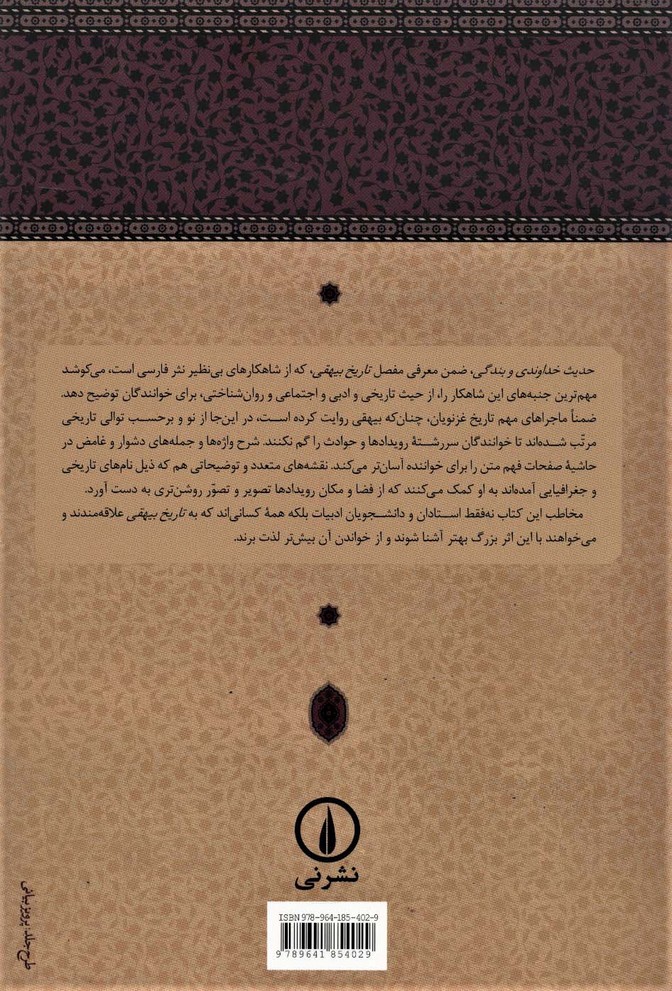 حدیث خداوندی و بندگی، ضمن معرفی مفصل تاریخ بیهقی، که از شاهکارهای بی‌نظیر نثر فارسی است، می‌کوشد
مهم‌ترین جنبه‌های این شاهکار را، از حیث تاریخی و ادبی و اجتماعی و روان‌شناختی، برای خوانندگان توضیح دهد.
ضمناً ماجراهای مهم تاریخ غزنویان، چنان‌که بیهقی روایت کرده است، در این‌جا از نو و برحسب توالی تاریخی
مرتّب شده‌اند تا خوانندگان سررشتهٔ رویدادها و حوادث را گم نکنند. شرح واژه‌ها و جمله‌های دشوار و غامض در
حاشیهٔ صفحات فهم متن را برای خواننده آسان‌تر می‌کند. نقشه‌های متعدد و توضیحاتی هم که ذیل نام‌های تاریخی
و جغرافیایی آمده‌اند به او کمک می‌کنند که از فضا و مکان رویدادها تصویر و تصوّر روشن‌تری به دست آورد.
مخاطب این کتاب نه‌فقط استادان و دانشجویان ادبیات بلکه همهٔ کسانی‌اند که به تاریخ بیهقی علاقه‌مندند و
می‌خواهند با این اثر بزرگ بهتر آشنا شوند و از خواندن آن بیش‌تر لذت برند.
نشرنی
ISBN 978-964-185-402-9
9789641854029
طرح جلد: پرویز بیانی